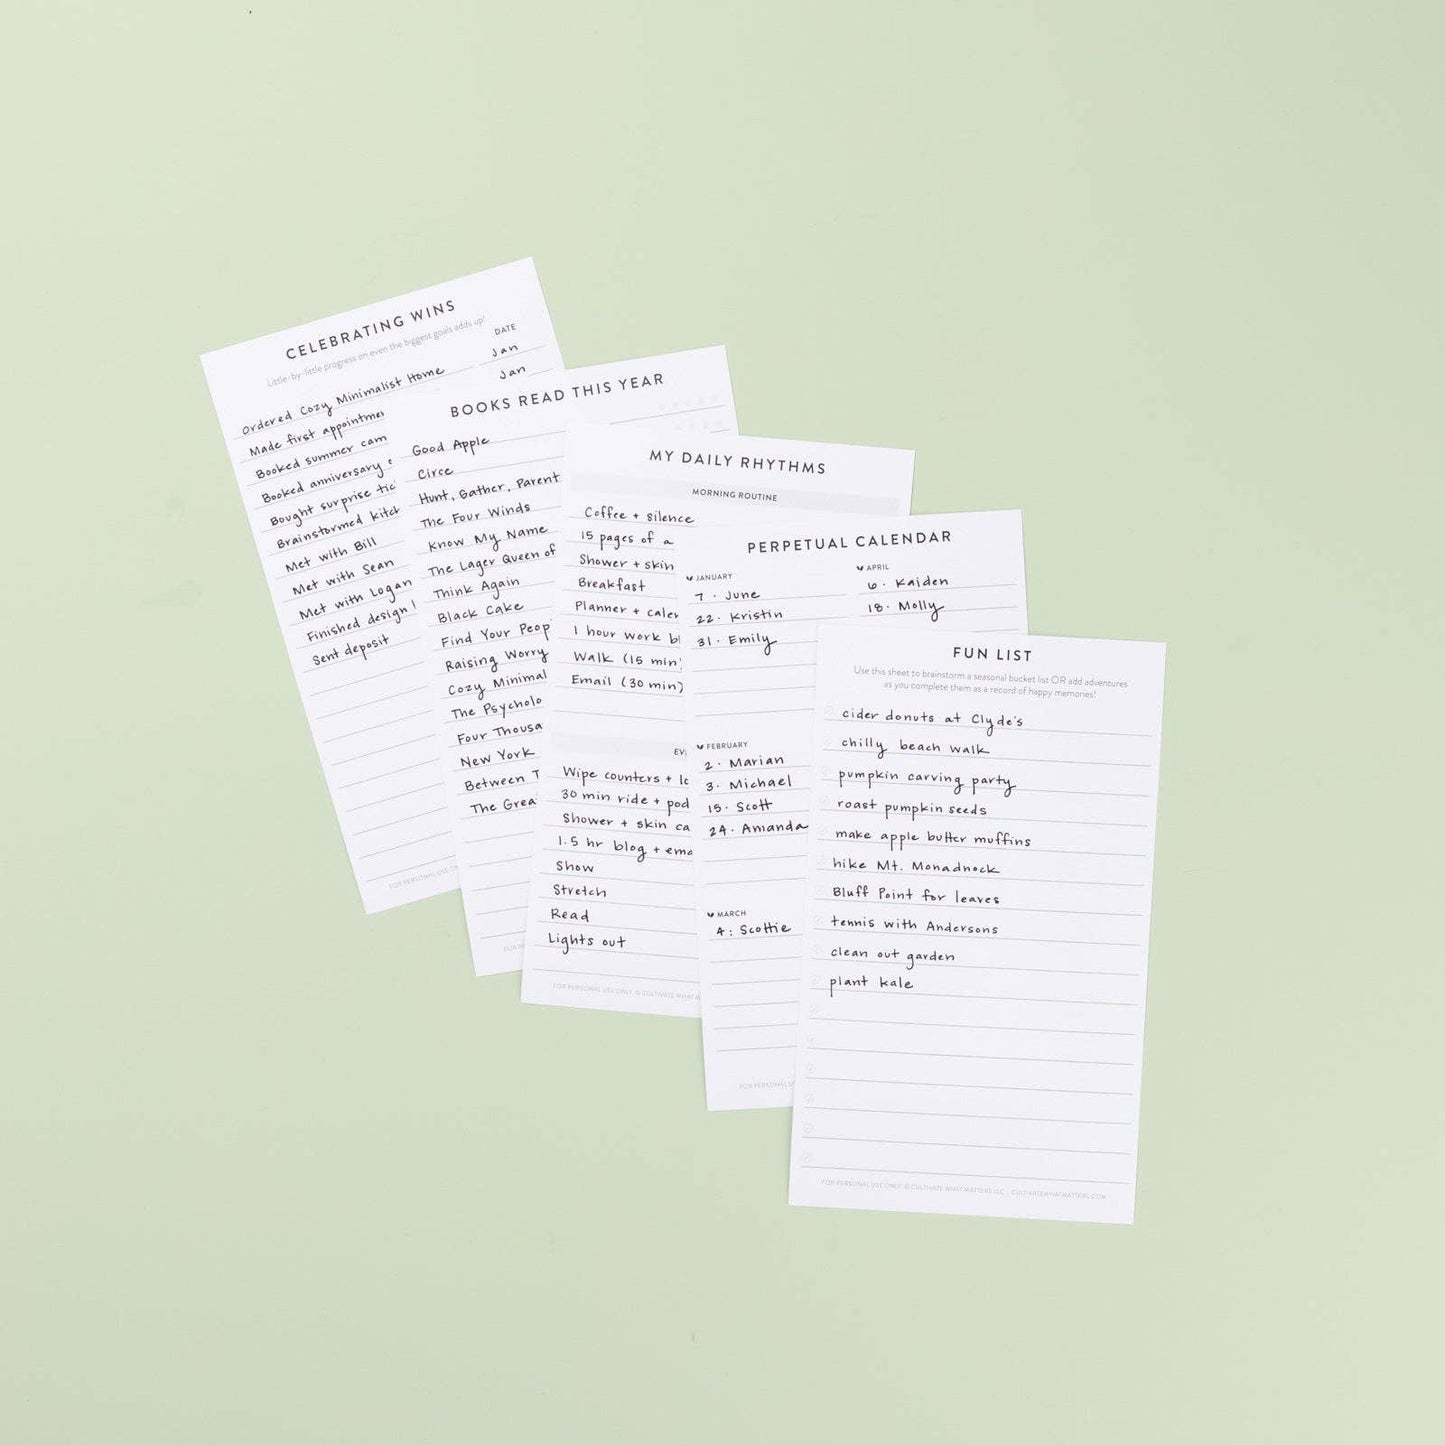 CELEBRATING WINS
Little-by-little progress on even the biggest goals adds up!
DATE
Ordered Cozy Minimalist Home Jan
Made first appointme Jan
Booked summer cam
Booked anniversary
Bought surprise tic
Brainstormed kitch
Met with Bill
Met with Sean
Met with Logan
Finished design!
Sent deposit
FOR PERSONAL USE ON
BOOKS READ THIS YEAR
Good Apple
Circe
Hunt, Gather, Parent
The Four Winds
Know My Name
The Lager Queen of
Think Again
Black Cake
Find Your Peop
Raising Worry
Cozy Minimal
The Psycholo
Four Thousa
New York
Between T
The Grea
FOR
MY DAILY RHYTHMS
MORNING ROUTINE
Coffee + silence
15 pages of a
Shower + skin
Breakfast
Planner + calen
1 hour work bl
Walk (15 min)
Email (30 min)
EV
Wipe counters + lo
30 min ride + pod
Shower + skin ca
1.5 hr blog + ema
Show
Stretch
Read
Lights out
FOR PERSONAL USE ONLY. © CULTIVATE WHAT MA
PERPETUAL CALENDAR
JANUARY
7 · June
22 · Kristin
31 · Emily
APRIL
6 · Kaiden
18 · Molly
FEBRUARY
2 · Marian
3 · Michael
15 · Scott
24 · Amanda
MARCH
4 : Scottie
FOR PERSONAL U
FUN LIST
Use this sheet to brainstorm a seasonal bucket list OR add adventures
as you complete them as a record of happy memories!
cider donuts at Clyde's
chilly beach walk
pumpkin carving party
roast pumpkin seeds
make apple butter muffins
hike Mt. Monadnock
Bluff Point for leaves
tennis with Andersons
clean out garden
plant kale
FOR PERSONAL USE ONLY. © CULTIVATE WHAT MATTERS LLC | CULTIVATEWHATMATTERS.COM